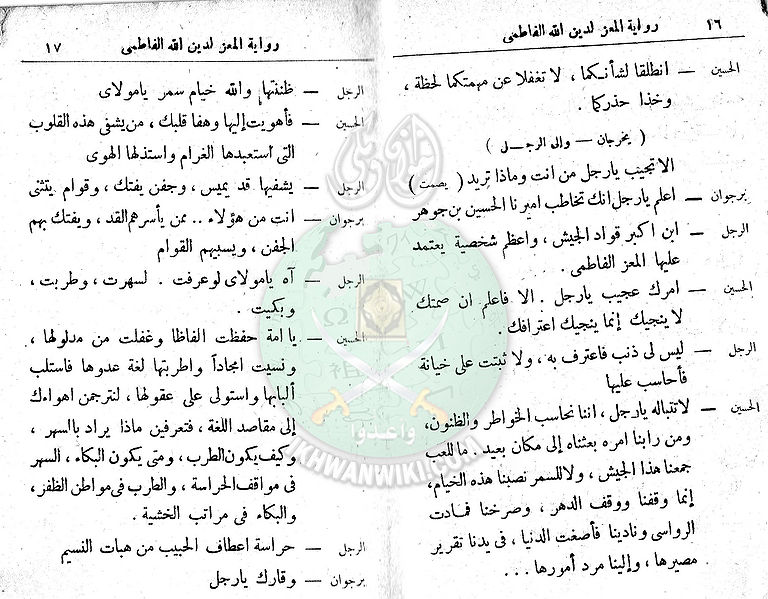 ١٦ رواية المعز لدين الله الفاطمى
الحسين — انطلقا لشأنكما ، لا تغفلا عن مهمتكما لحظة ،
وخذا حذركما .
( يخرجان — والى الرجـــلى )
الاتجيب يارجل من انت وماذا تريد ( يصمت )
برجوان — اعلم يارجل انك تخاطب اميرنا الحسين بن جوهر
الرجل — ابن اكبر قواد الجيش ، واعظم شخصية يعتمد
عليها المعز الفاطمى .
الحسين — امرك عجيب يارجل . الا فاعلم ان صمتك
لا ينجيك إنما ينجيك اعترافك .
الرجل — ليس لى ذنب فاعترف به ، ولا ثبتت على خيانة
فأحاسب عليها
الحسين — لاتتباله يارجل ، اننا نحاسب الخواطر والظنون ،
ومن رابنا امره بعثناه إلى مكان بعيد . ما للعب
جمعنا هذا الجيش ، ولا للسمر نصبنا هذه الخيام ،
إنما وقفنا ووقف الدهر ، وصرخنا فمادت
الرواسى ونادينا فأصغت الدنيا ، فى يدنا تقرير
مصيرها ، وإلينا مرد أمورها ...
رواية المعز لدين الله الفاطمى ١٧
الرجل — ظننتها والله خيام سمر يامولاى
الحسين — فأهويت إليها وهفا قلبك ، من يشفى هذه القلوب
التى استعبدها الغرام واستذلها الهوى
الرجل — يشفيها قد يميس ، وجفن يفتك ، وقوام يتثنى
برجوان — انت من هؤلاء .. ممن يأسرهم القد ، ويفتك بهم
الجفن ، ويسبيهم القوام
الرجل — آه يامولاى لو عرفت . لسهرت ، وطربت ،
وبكيت .
الحسين — يا امة حفظت الفاظا وغفلت من مدلولها ،
ونسيت امجاداً واطربتها لغة عدوها فاستلب
ألبابها واستولى على عقولها ، لنترجمن اهواءك
إلى مقاصد اللغة ، فتعرفين ماذا يراد بالسهر ،
وكيف يكون الطرب ، ومتى يكون البكاء ، السهر
فى مواقف الحراسة ، والطرب فى مواطن الظفر ،
والبكاء فى مراتب الخشية .
الرجل — حراسة اعطاف الحبيب من هبات النسيم
برجوان — وقارك يارجل
واعدوا
IKHWANWIKI.COM